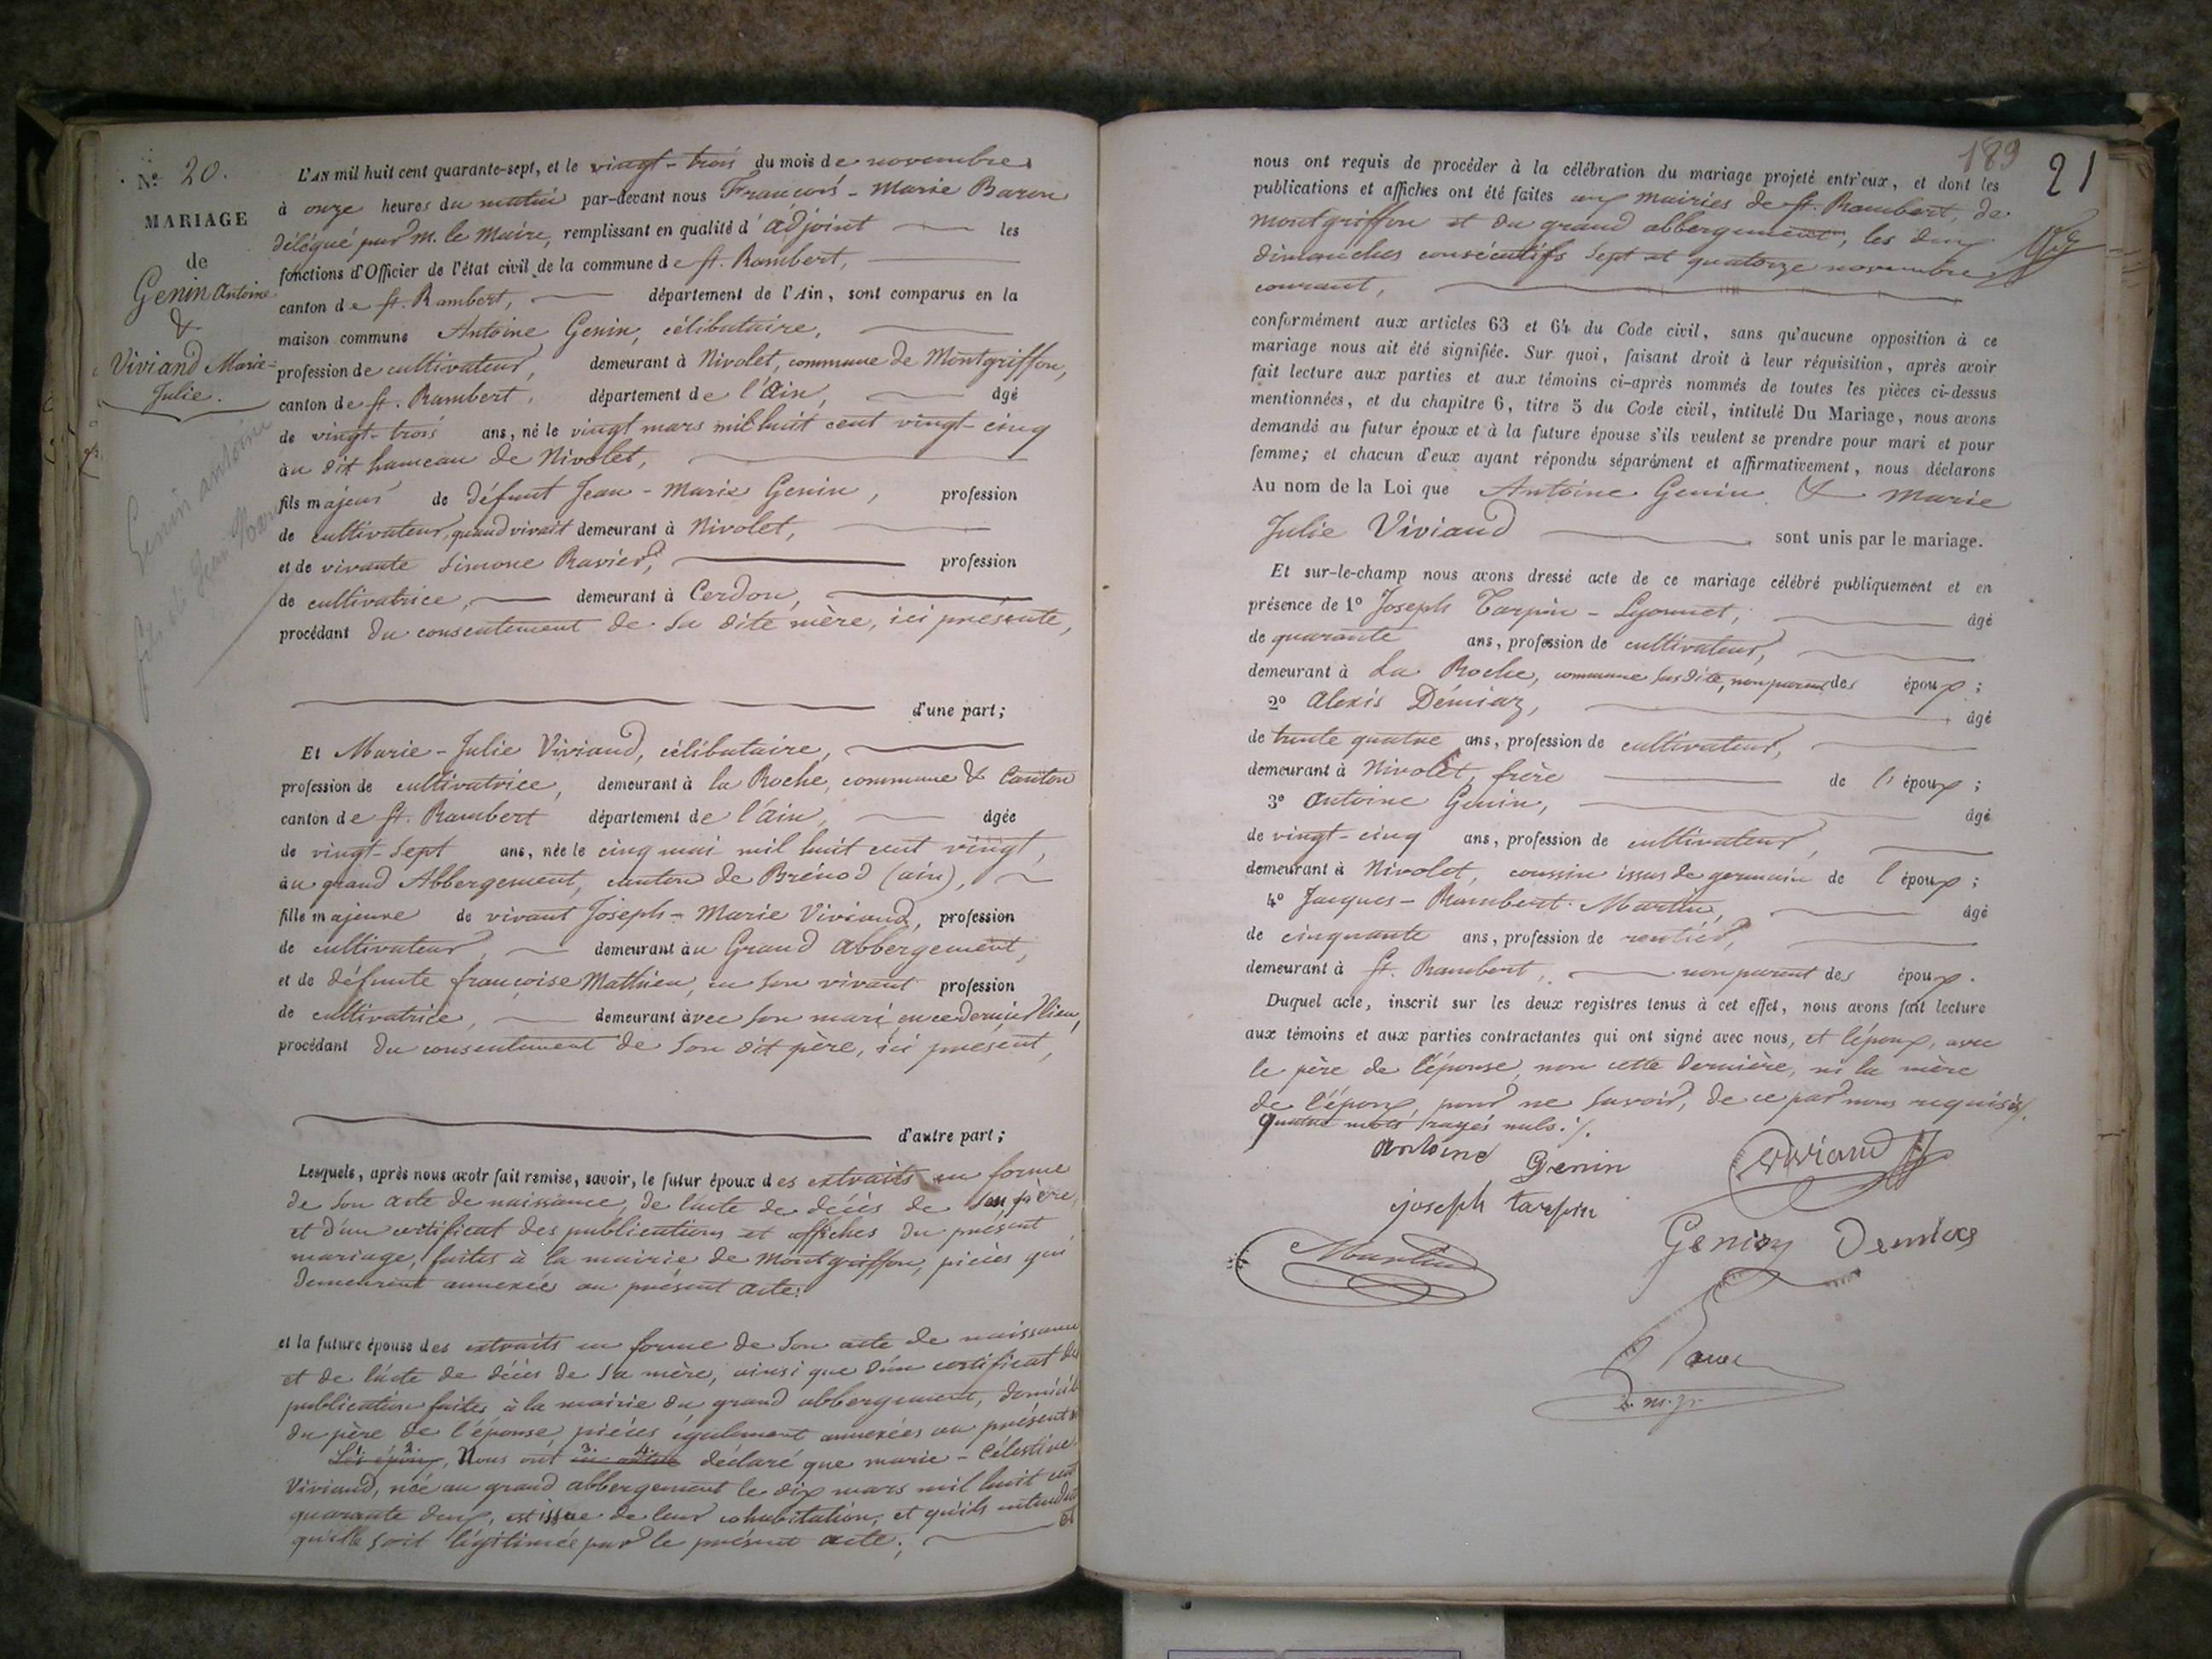 Nº 20.
MARIAGE
de
Genin Antoine
&
Viviand Marie-
Julie.
Genin antoine
fils de Jean Marie
L'AN mil huit cent quarante-sept, et le vingt-trois du mois de novembre
à onze heures du matin par-devant nous François-Marie Baron
délégué par M. le Maire, remplissant en qualité d'adjoint les
fonctions d'Officier de l'état civil de la commune de St. Rambert,
canton de St. Rambert, département de l'Ain, sont comparus en la
maison commune Antoine Genin, célibataire,
profession de cultivateur, demeurant à Nivolet, commune de Montgriffon,
canton de St. Rambert, département de l'Ain, âgé
de vingt-trois ans, né le vingt mars mil huit cent vingt-cinq
au dit hameau de Nivolet,
fils majeur de défunt Jean-Marie Genin, profession
de cultivateur, quand vivait demeurant à Nivolet,
et de vivante Simone Ravier, profession
de cultivatrice, demeurant à Cerdon,
procédant du consentement de sa dite mère, ici présente,
d'une part;
Et Marie-Julie Viviand, célibataire,
profession de cultivatrice, demeurant à la Roche, commune & Canton
canton de St. Rambert département de l'ain, âgée
de vingt-sept ans, née le cinq mai mil huit cent vingt,
au grand Abbergement, canton de Brénod (ain),
fille majeure de vivant Joseph-Marie Viviand, profession
de cultivateur, demeurant au Grand abbergement,
et de défunte françoise Mathieu, en son vivant profession
de cultivatrice, demeurant avec son mari, en ce dernier lieu,
procédant du consentement de son dit père, ici présent,
d'autre part;
Lesquels, après nous avoir fait remise, savoir, le futur époux des extraits en forme
de son acte de naissance, de l'acte de décès de son père,
et d'un certificat des publications et affiches du présent
mariage, faites à la mairie de Montgriffon, pièces qui
demeurent annexées au présent acte:
et la future épouse des extraits en forme de son acte de naissance
et de l'acte de décès de sa mère, ainsi que d'un certificat des
publication faites à la mairie du grand abbergement, domicile
du père de l'épouse, pièces également annexées au présent
Les époux, Nous ont déclaré que marie-Célestine
Viviand, née au grand abbergement le dix mars mil huit cent
quarante deux, est issue de leur cohabitation, et qu'ils entendent
qu'elle soit légitimée par le présent acte; et
189
21
nous ont requis de procéder à la célébration du mariage projeté entr'eux, et dont les
publications et affiches ont été faites aux mairies de St. Rambert, de
montgriffon et du grand abbergement, les deux
dimanches consécutifs sept et quatorze novembre
courant,
conformément aux articles 63 et 64 du Code civil, sans qu'aucune opposition à ce
mariage nous ait été signifiée. Sur quoi, faisant droit à leur réquisition, après avoir
fait lecture aux parties et aux témoins ci-après nommés de toutes les pièces ci-dessus
mentionnées, et du chapitre 6, titre 5 du Code civil, intitulé Du Mariage, nous avons
demandé au futur époux et à la future épouse s'ils veulent se prendre pour mari et pour
femme; et chacun d'eux ayant répondu séparément et affirmativement, nous déclarons
Au nom de la Loi que Antoine Genin & Marie
Julie Viviand sont unis par le mariage.
Et sur-le-champ nous avons dressé acte de ce mariage célébré publiquement et en
présence de 1º Joseph Tarpin-Lyonnet, âgé
de quarante ans, profession de cultivateur,
demeurant à La Roche, commune susdite, non parent des époux;
2º Alexis Démiaz, âgé
de trente quatre ans, profession de cultivateur,
demeurant à Nivolet, frère de l'époux;
3º Antoine Genin, âgé
de vingt-cinq ans, profession de cultivateur,
demeurant à Nivolet, coussin issus de germain de l'époux;
4º Jacques-Rambert Martin, âgé
de cinquante ans, profession de rentier,
demeurant à St. Rambert, non parent des époux.
Duquel acte, inscrit sur les deux registres tenus à cet effet, nous avons fait lecture
aux témoins et aux parties contractantes qui ont signé avec nous, et l'époux, avec
le père de l'épouse, non cette dernière, ni la mère
de l'époux, pour ne savoir, de ce par nous requis ./.
Quatre mots rayés nuls ./.
antoine Genin
Viviand
joseph tarpin
Genin
Demias
Martin